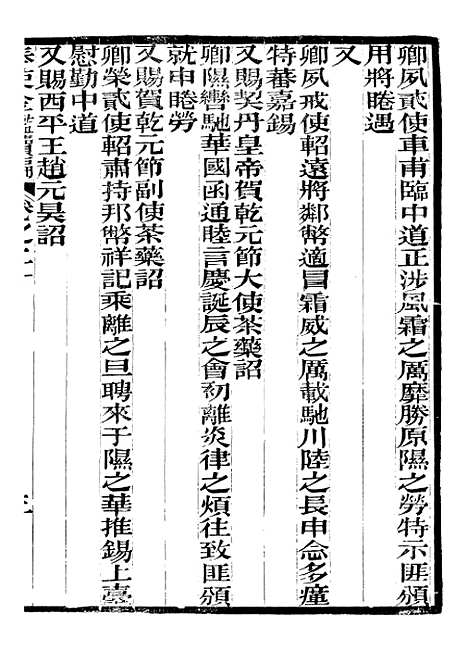 卿夙貳使車甫臨中道正涉風霜之厲靡勝原隰之勞特示匪頒
用將睠遇
又
卿夙戒使軺遠將鄰幣適冒霜威之厲載馳川陸之長申念多癉
特蕃嘉錫
又賜契丹皇帝賀乾元節大使茶藥詔
卿隰轡馳華國函通睦言慶誕辰之會初離炎律之煩往致匪頒
就申睠勞
又賜賀乾元節副使茶藥詔
卿榮貳使軺肅持邦幣祥記乘離之旦聘來于隰之華推錫上臺
慰勤中道
又賜西平王趙元昊詔
奉使金鑑續編 卷之二